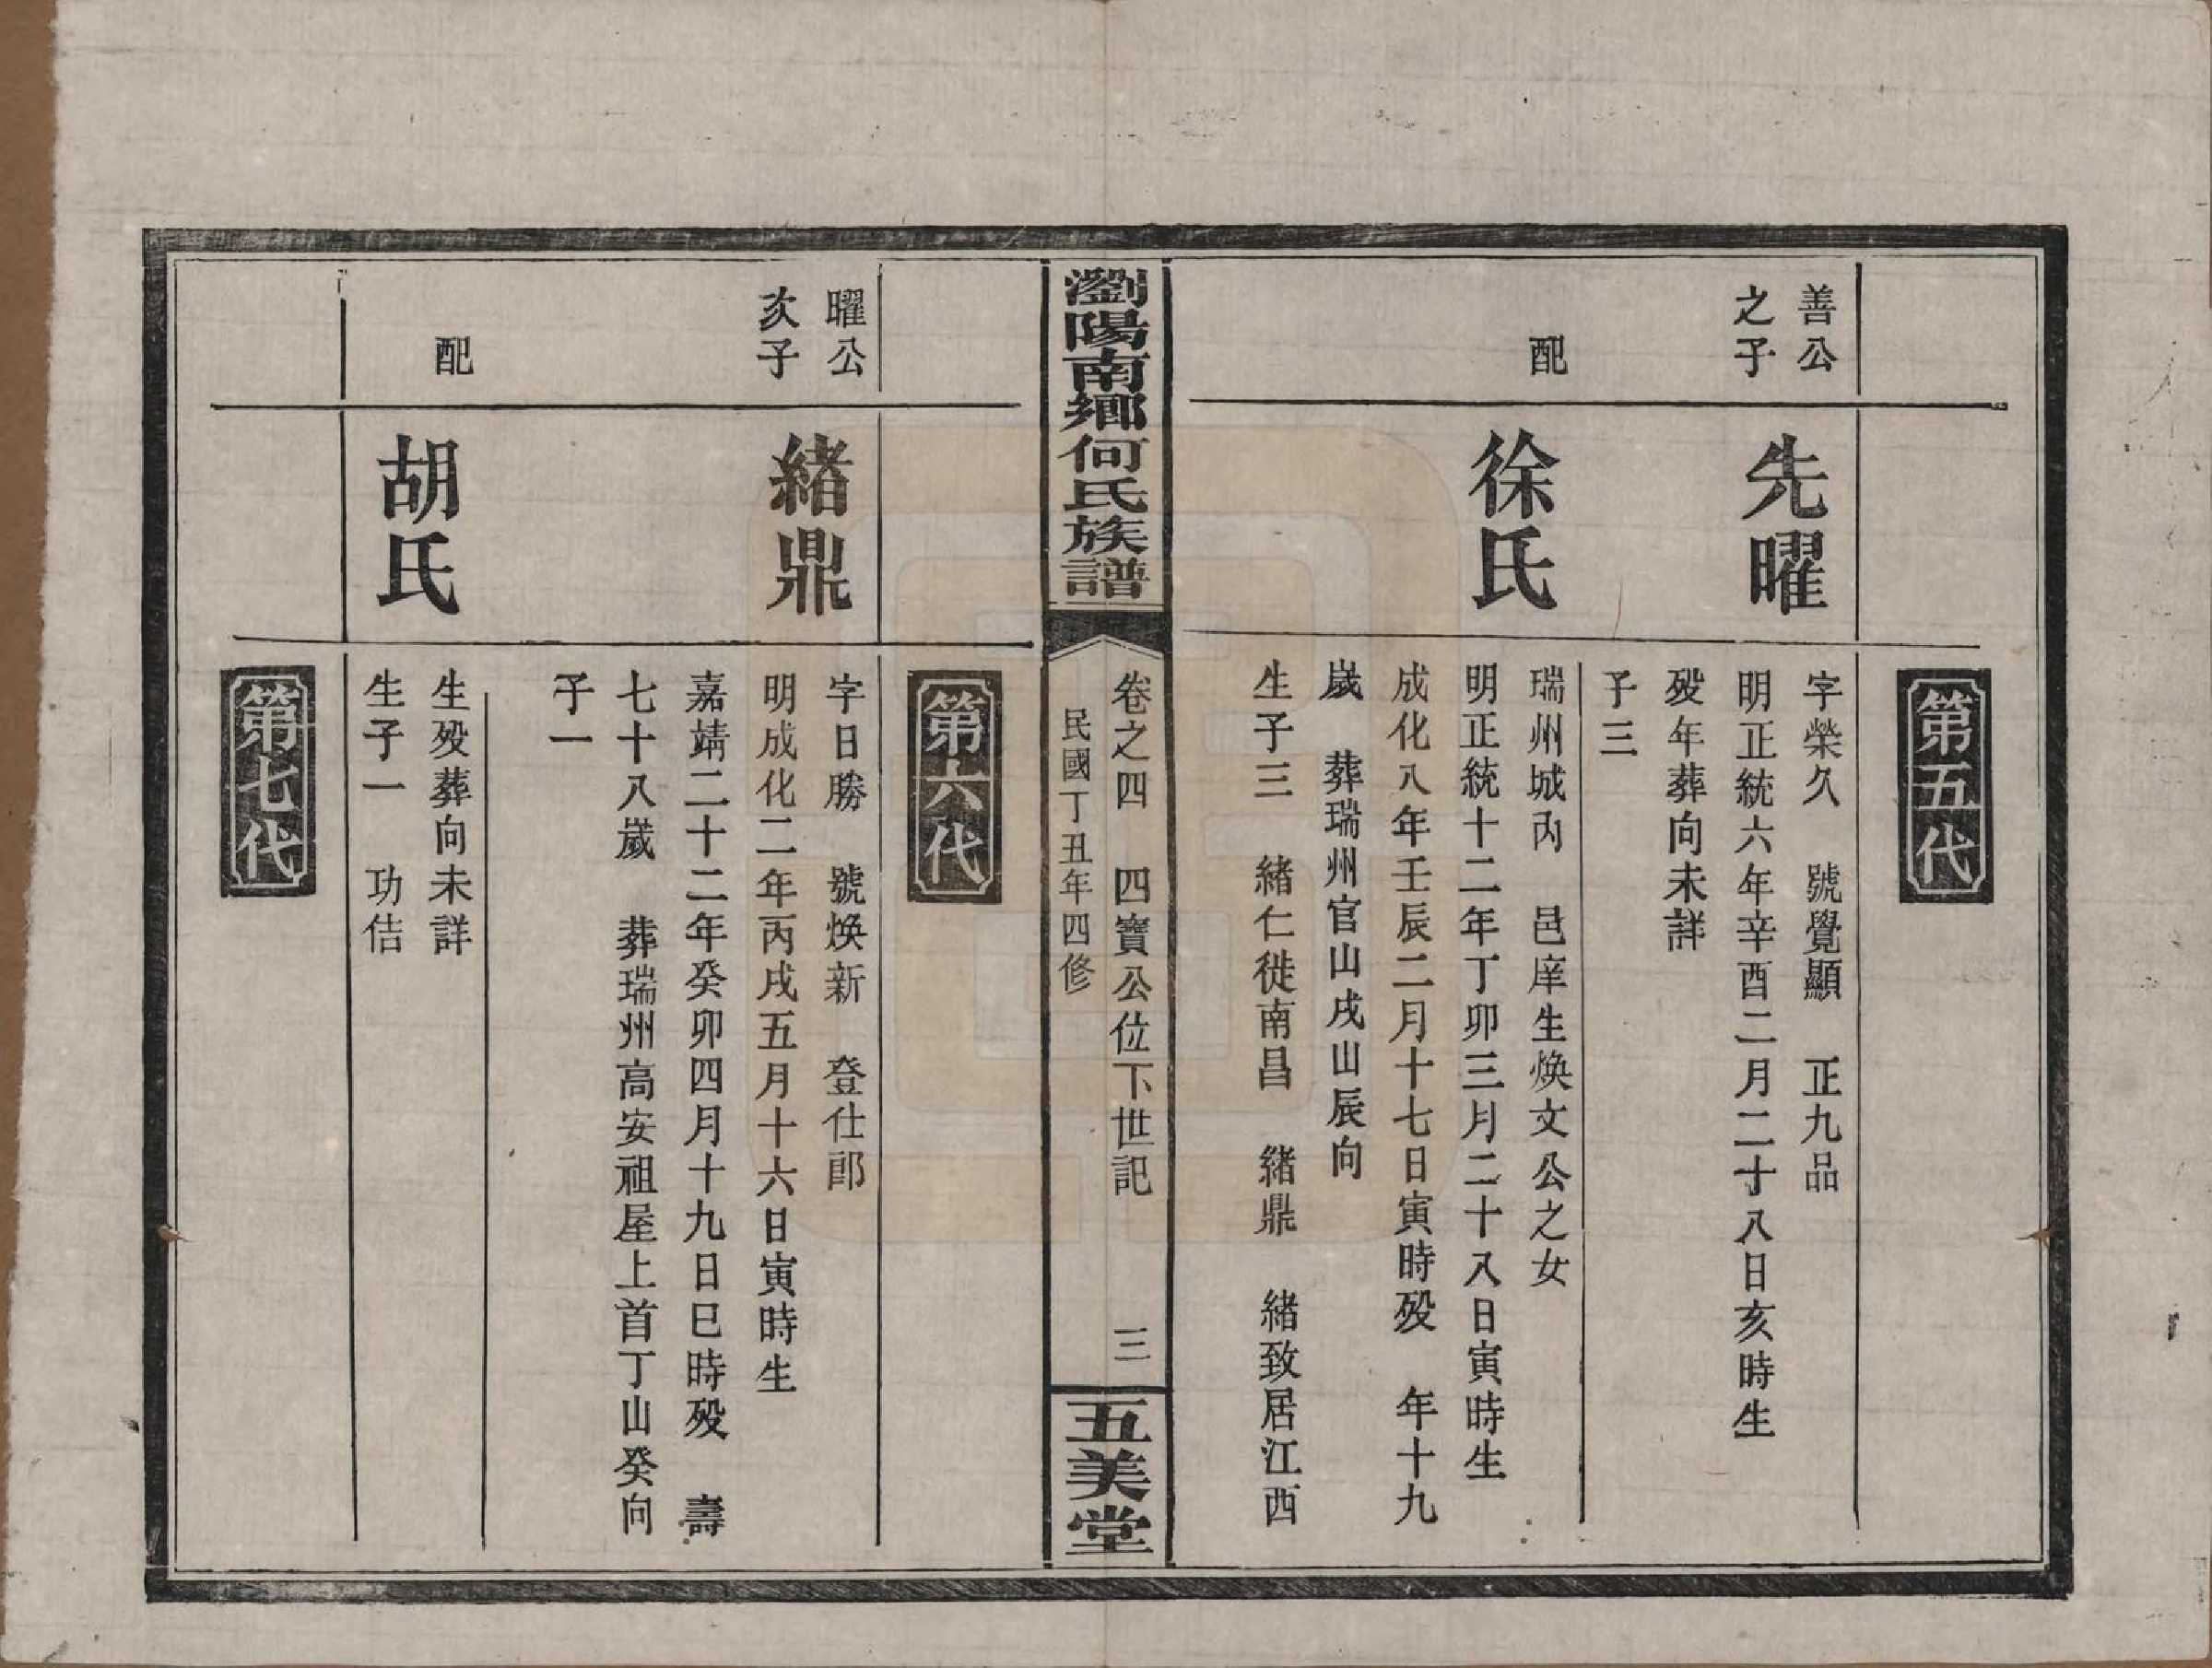 第五代
善公
之子
先曜
字榮久　號覺顯　正九品
明正統六年辛酉二月二十八日亥時生
殁年葬向未詳
子三
配
徐氏
瑞州城內　邑庠生煥文公之女
明正統十二年丁卯三月二十八日寅時生
成化八年壬辰二月十七日寅時殁　年十九
歲　葬瑞州官山戌山辰向
生子三　緒仁徙南昌　緒鼎　緒致居江西
瀏陽南鄉何氏族譜
卷之四　四寶公位下世記　三
民國丁丑年四修
五美堂
第六代
曜公
次子
緒鼎
字日勝　號煥新　登仕郎
明成化二年丙戌五月十六日寅時生
嘉靖二十二年癸卯四月十九日巳時殁　壽
七十八歲　葬瑞州高安祖屋上首丁山癸向
子一
配
胡氏
生殁葬向未詳
生子一　功佶
第七代